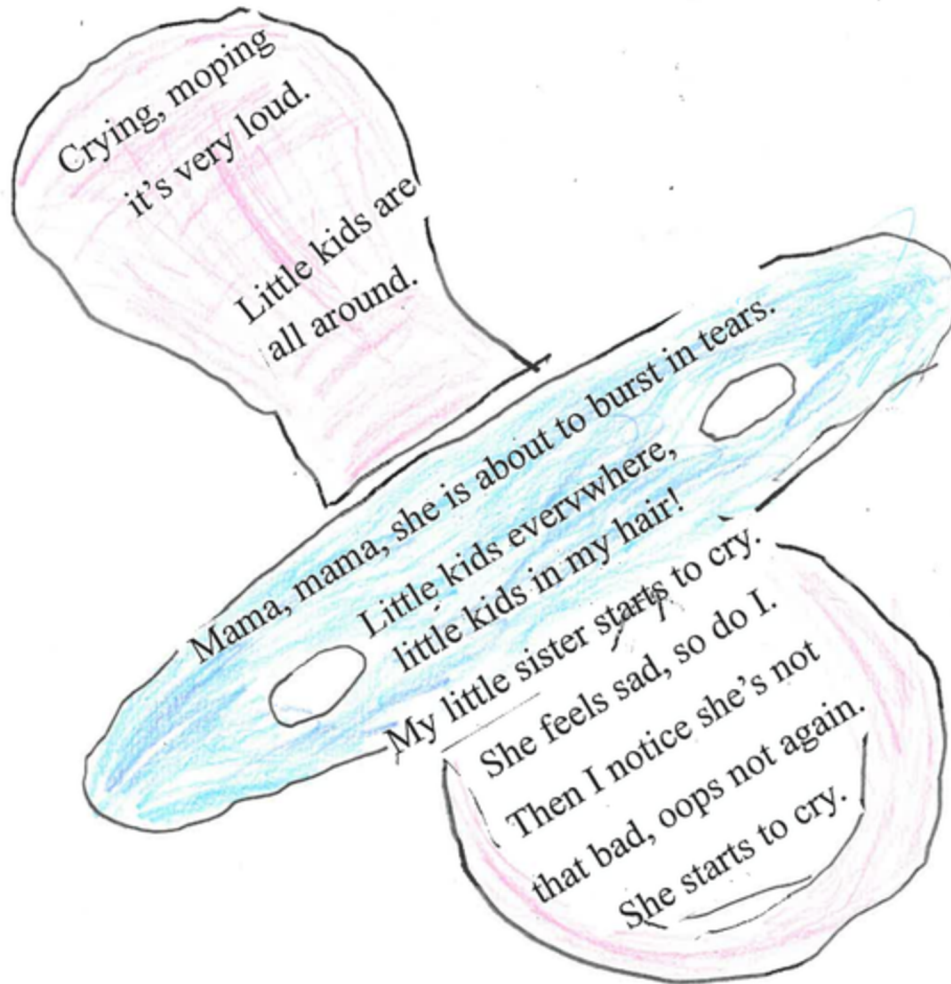 Crying, moping
it's very loud.
Little kids are
all around.
Mama, mama, she is about to burst in tears.
Little kids everywhere,
little kids in my hair!
My little sister starts to cry.
She feels sad, so do I.
Then I notice she's not
that bad, oops not again.
She starts to cry.